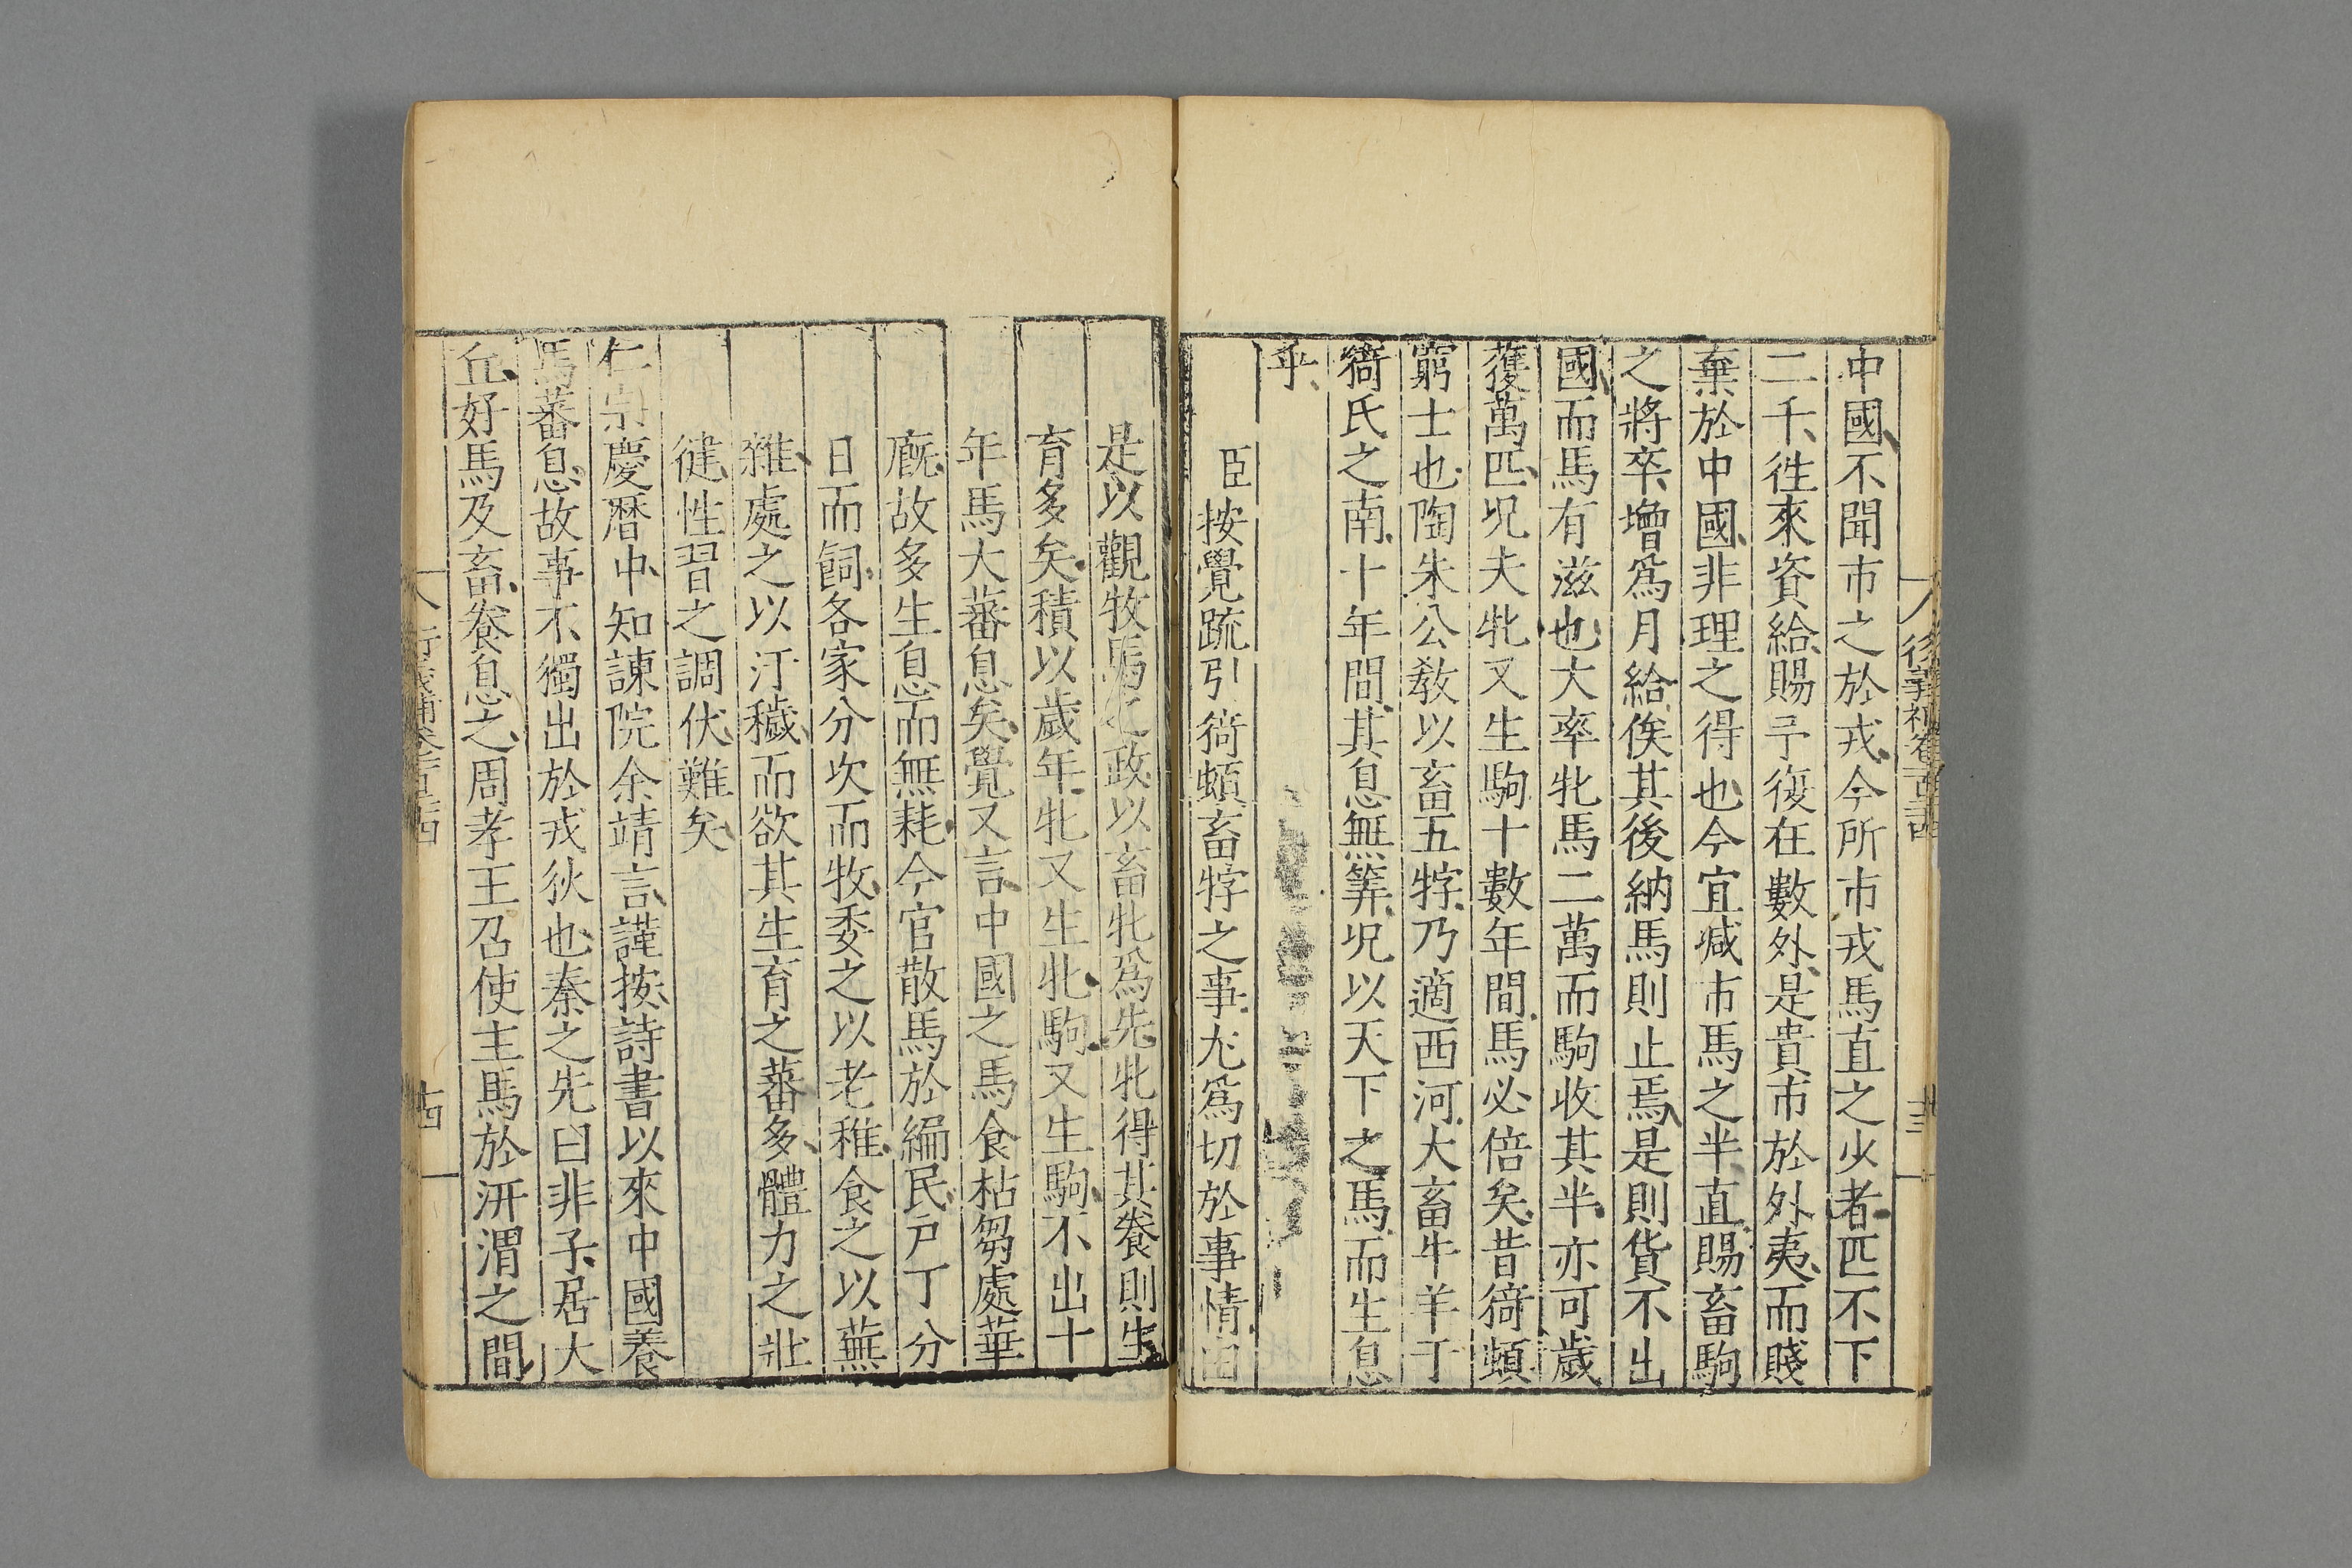 中國不聞市之於戎今所市戎馬直之少者匹不下
二千徃來資給賜予復在數外是貴市於外夷而賤
棄於中國非理之得也今宜減市馬之半直賜畜駒
之將卒增爲月給俟其後納馬則止焉是則貨不出
國而馬有滋也大率牝馬二萬而駒收其半亦可歲
獲萬匹况夫牝又生駒十數年間馬必倍矣昔猗頓
窮士也陶朱公敎以畜五牸乃適西河大畜牛羊于
猗氏之南十年間其息無筭况以天下之馬而生息
乎
臣按覺疏引猗頓畜牸之事尤爲切於事情由
是以觀牧馬之政以畜牝爲先牝得其養則生
育多矣積以歲年牝又生牝駒又生駒不出十
年馬大蕃息矣覺又言中國之馬食枯芻處華
廐故多生息而無耗今官散馬於編民户丁分
日而飼各家分次而牧委之以老稚食之以蕪
雜處之以汙穢而欲其生育之蕃多體力之壯
徤性習之調伏難矣
仁宗慶曆中知諫院余靖言謹按詩書以來中國養
馬蕃息故事不獨出於戎狄也秦之先曰非子居犬
丘好馬及畜養息之周孝王召使主馬於汧渭之間
十四